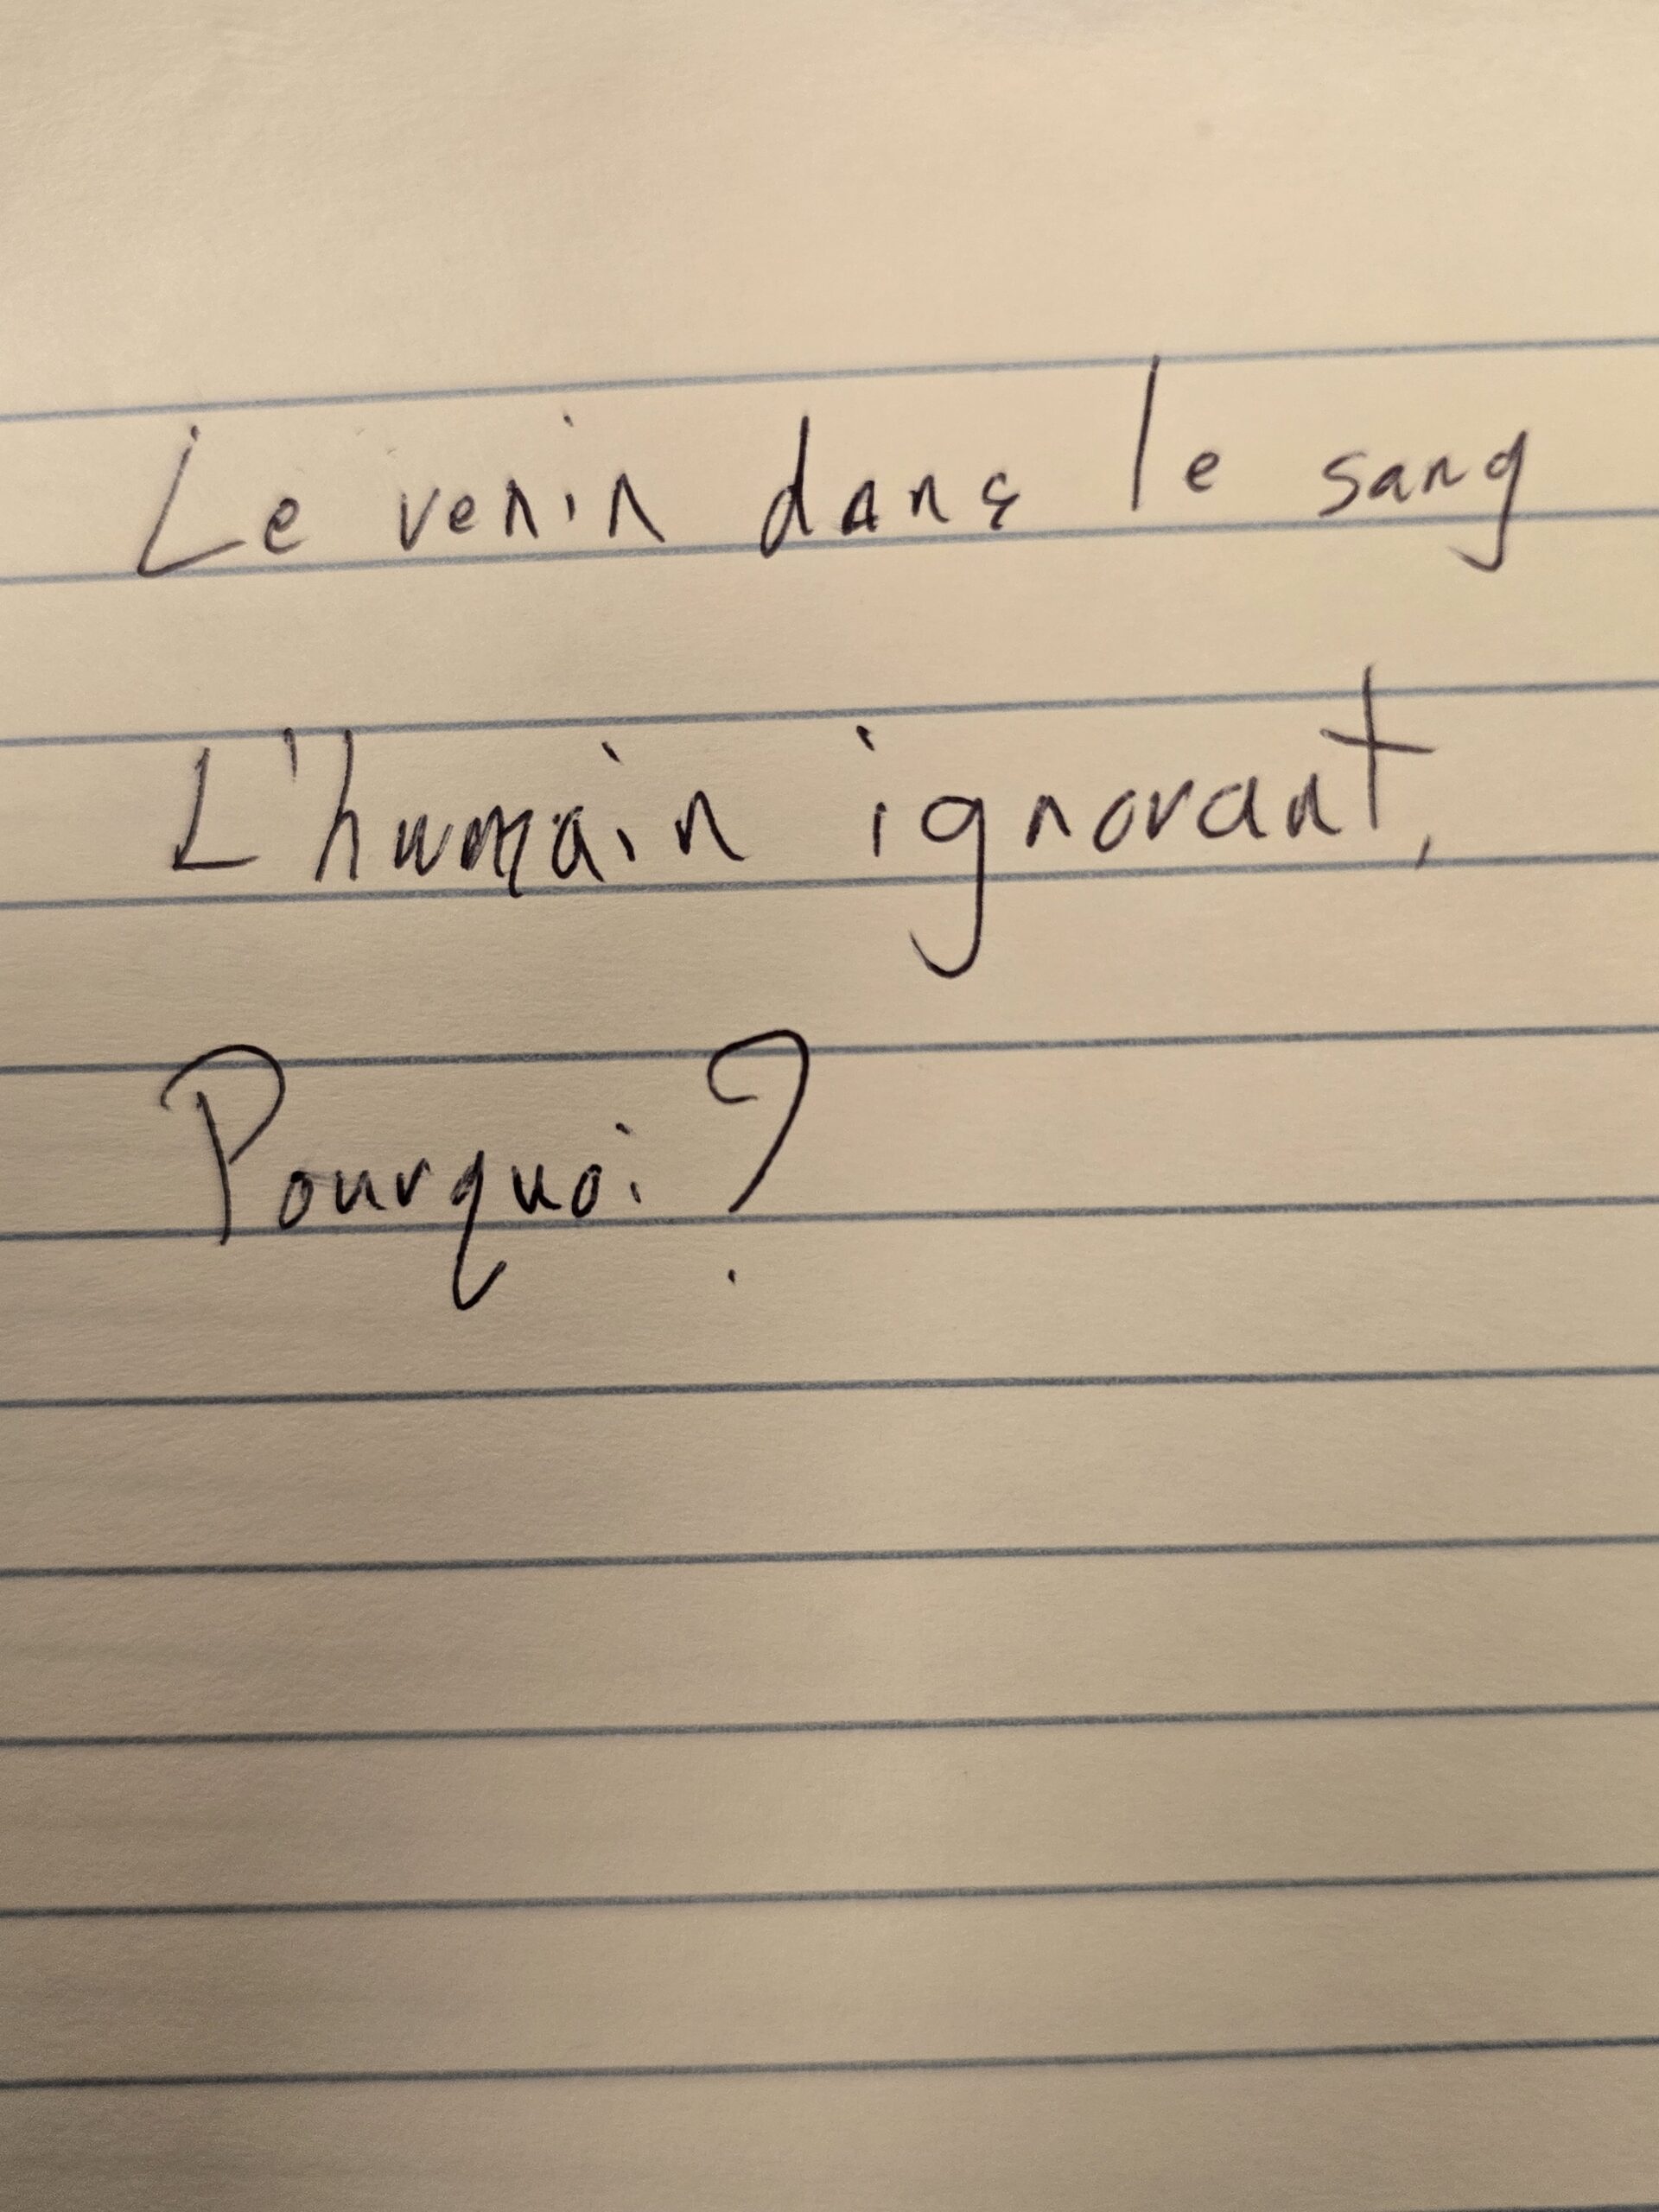 Le venin dans le sang
L'humain ignorant,
Pourquoi?